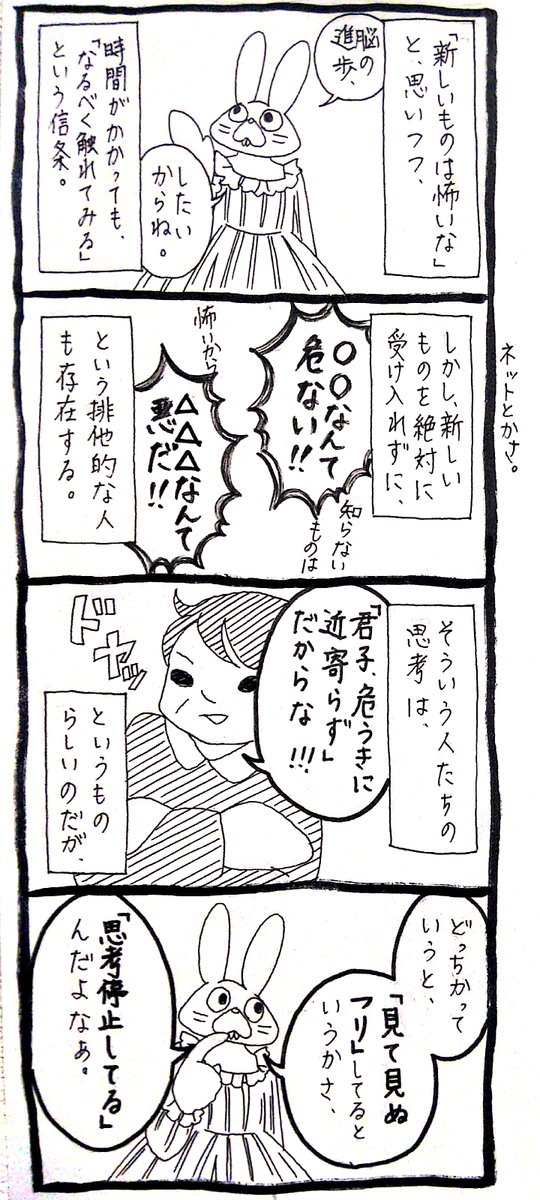 「新しいものは怖いな」
と、思いつつ、
脳の
進歩、
したい
からね。
時間がかかっても、
「なるべく触れてみる」
という信条。
ネットとかさ。
しかし、新しい
ものを絶対に
受け入れずに、
○○なんて
危ない!!
知らない
ものは
怖いから
△△△なんて
悪だ!!
という排他的な人
も存在する。
そういう人たちの
思考は、
「君子、危うきに
近寄らず」
だからな!!!
ドヤッ
というもの
らしいのだが、
どっちかって
いうと、
「見て見ぬ
フリ」してると
いうかさ、
「思考停止してる」
んだよなぁ。